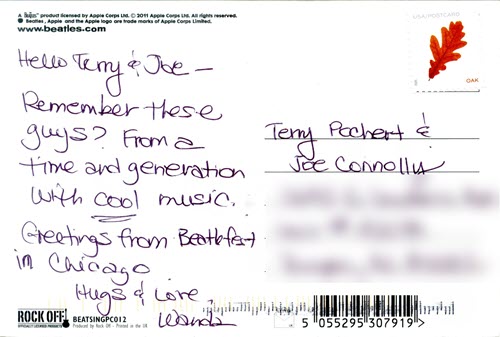 A Beatles™ product licensed by Apple Corps Ltd. © 2011 Apple Corps Ltd. All rights reserved.
Beatles, Apple and the Apple logo are trade marks of Apple Corps Limited.
www.beatles.com
USA/POSTCARD
OAK
Hello Terry & Joe —
Remember these
guys? From a
time and generation
with cool music.
Greetings from Beatlefest
in Chicago
Hugs & Love,
Wanda
Terry Pachert &
Joe Connolly
ROCK OFF!
OFFICIALLY LICENSED PRODUCTS
BEATSINGPC012
Produced by Rock Off - Printed in the UK
5 055295 307919 >